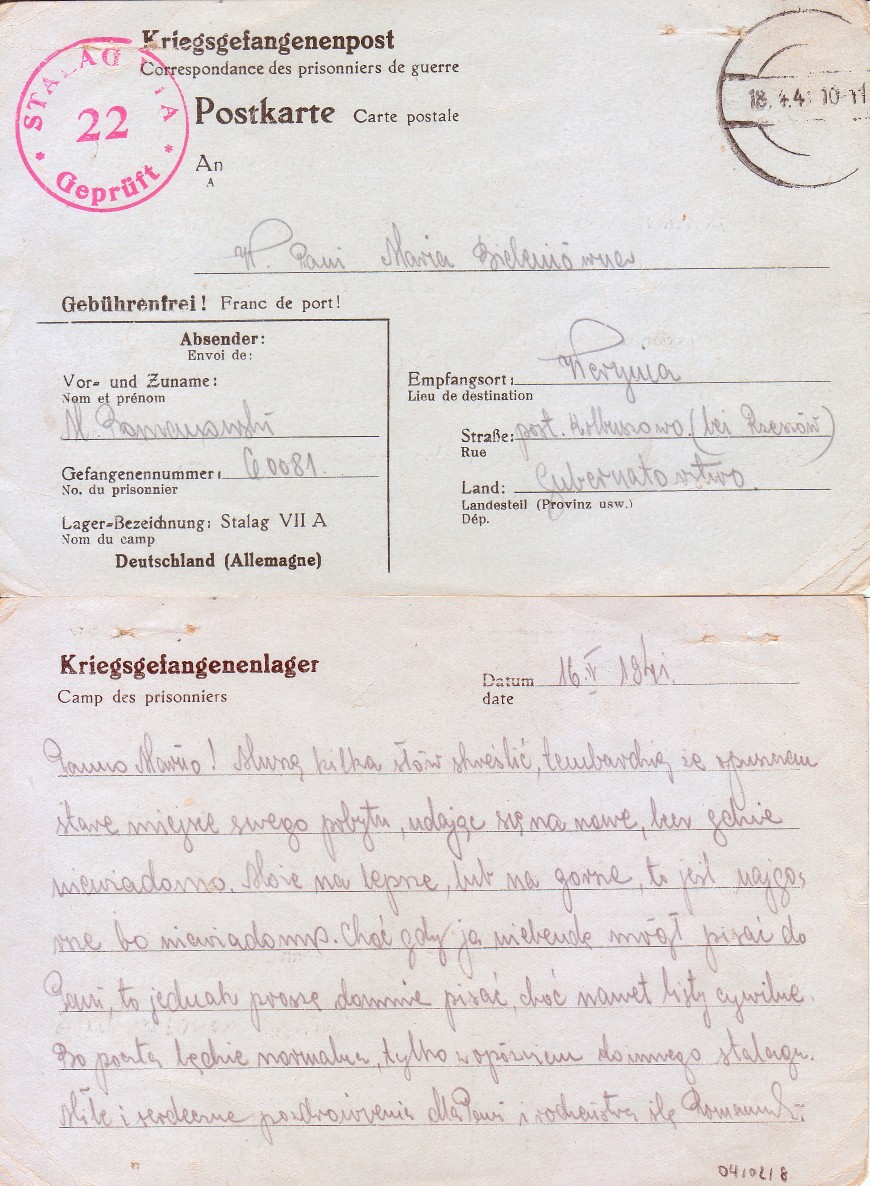 Kriegsgefangenenpost
Correspondance des prisonniers de guerre
STALAG VII A
22
Geprüft
18.4.4 10-11
Postkarte Carte postale
An
A
W. Pani Maria Bieleniówna
Gebührenfrei! Franc de port!
Absender:
Envoi de:
Vor- und Zuname:
Nom et prénom
M. Romanowski
Gefangenennummer:
No. du prisonnier
Lager-Bezeichnung: Stalag VII A
Nom du camp
Deutschland (Allemagne)
Empfangsort: Werynia
Lieu de destination
Straße: post. Kolbuszowo. (bei Rzeszów)
Rue
Land: Gubernatorstwo.
Landesteil (Provinz usw.)
Dép.
Kriegsgefangenenlager
Camp des prisonniers
Datum 16.V 1941.
date
Panno Mario! Muszę kilka słów skreślić, tembardziej że opuszczam
stare miejsce swego pobytu, udając się na nowe, lecz gdzie
niewiadomo. Może na lepsze, lub na gorsze, to jest najgo,
rsze bo niewiadomo. Choć gdy ja niebende mógł pisać do
Pani, to jednak proszę domnie pisać, choć nawet listy cywilne.
Bo poczta będzie normalna, tylko z opóźniem do innego stalagu.
Miłe i serdeczne pozdrowienia dla Pani i rodzeństwa śle Romanowski
04/02/8